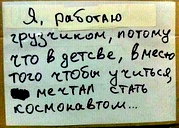 Я, работаю
грузчиком, потому
что в детсве, вместо
того чтобы учиться,
мечтал стать
космонавтом...